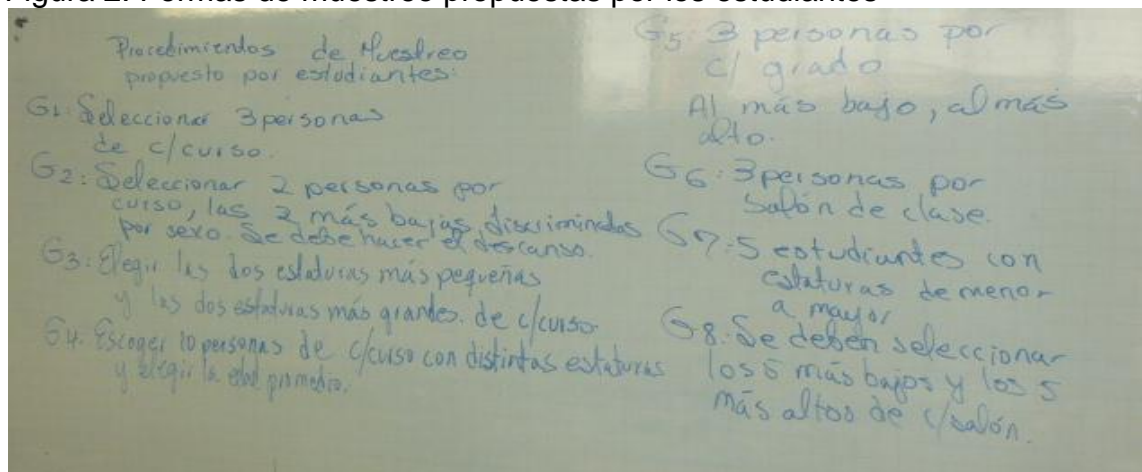 Figura 2. Formas de muestreo propuestas por los estudiantes
Procedimientos de Muestreo
propuesto por estudiantes:
G1: Seleccionar 3 personas
de c/curso.
G2: Seleccionar 2 personas por
curso, las 2 más bajas, discriminados
por sexo. Se debe hacer el descanso.
G3: Elegir las dos estaturas más pequeñas
y las dos estaturas más grandes. de c/curso
G4. Escoger 10 personas de c/curso con distintas estaturas
y elegir la edad promedio.
G5: 3 personas por
c/ grado
Al más bajo, al más
alto.
G6: 3 personas por
salón de clase.
G7: 5 estudiantes con
estaturas de menor
a mayor
G8: Se deben seleccionar
los 5 más bajos y los 5
más altos de c/salón.